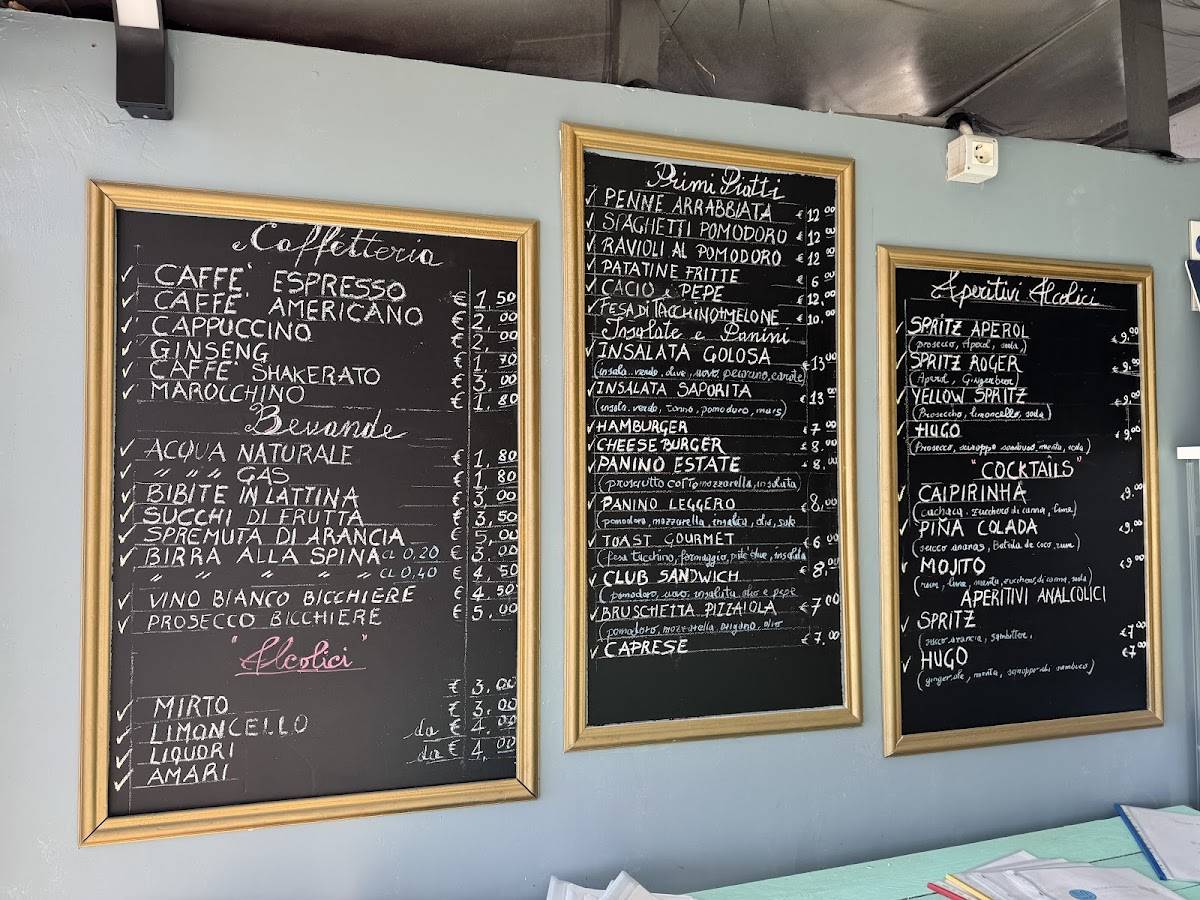 Caffetteria
✓ CAFFE' ESPRESSO € 1,50
✓ CAFFE' AMERICANO € 2,00
✓ CAPPUCCINO € 2,00
✓ GINSENG € 1,70
✓ CAFFE' SHAKERATO € 3,00
✓ MAROCCHINO € 1,80
Bevande
✓ ACQUA NATURALE € 1,80
✓ " " " GAS € 1,80
✓ BIBITE IN LATTINA € 3,00
✓ SUCCHI DI FRUTTA € 3,50
✓ SPREMUTA DI ARANCIA € 5,00
✓ BIRRA ALLA SPINA CL 0,20 € 3,00
" " " " " CL 0,40 € 4,50
✓ VINO BIANCO BICCHIERE € 4,50
✓ PROSECCO BICCHIERE € 5,00
"Alcolici"
✓ MIRTO € 3,00
✓ LIMONCELLO € 3,00
✓ LIQUORI da € 4,00
✓ AMARI da € 4,00
Primi Piatti
✓ PENNE ARRABBIATA € 12,00
✓ SPAGHETTI POMODORO € 12,00
✓ RAVIOLI AL POMODORO € 12,00
✓ PATATINE FRITTE € 6,00
✓ CACIO e PEPE € 12,00
✓ FESA DI TACCHINO+MELONE € 10,00
Insalate e Panini
✓ INSALATA GOLOSA € 13,00
(insala. verde, olive, uovo, pecorino, carote)
✓ INSALATA SAPORITA € 13,00
(insala. verde, tonno, pomodoro, mais)
✓ HAMBURGER € 7,00
✓ CHEESEBURGER € 8,00
✓ PANINO ESTATE € 8,00
(prosciutto cotto mozzarella, insalata)
✓ PANINO LEGGERO € 8,00
(pomodoro, mozzarella, insalata, olio, sale
✓ TOAST GOURMET € 6,00
(fesa tacchino, formaggio, olive, insalata
✓ CLUB SANDWICH € 8,00
(pomodoro, uovo, insalata, olio e pepe
✓ BRUSCHETTA PIZZAIOLA € 7,00
(pomodoro, mozzarella, origano, olio
✓ CAPRESE € 7,00
Aperitivi Alcolici
✓ SPRITZ APEROL € 9,00
(prosecco, Aperol, soda)
✓ SPRITZ ROGER € 9,00
(Aperol, Gingerbeer)
✓ YELLOW SPRITZ € 9,00
(Prosecco, limoncello, soda)
✓ HUGO € 9,00
(Prosecco, sciroppo sambuco, menta, soda)
"COCKTAILS"
✓ CAIPIRINHA € 9,00
(cachaca, zucchero di canna, lime)
✓ PIÑA COLADA € 9,00
(succo ananas, Batida de coco, rum)
✓ MOJITO € 9,00
(rum, lime, menta, zucchero di canna, soda)
APERITIVI ANALCOLICI
✓ SPRITZ € 7,00
(succo arancia, sanbitter,
✓ HUGO € 7,00
(gingerale, menta, sciroppo di sambuco)